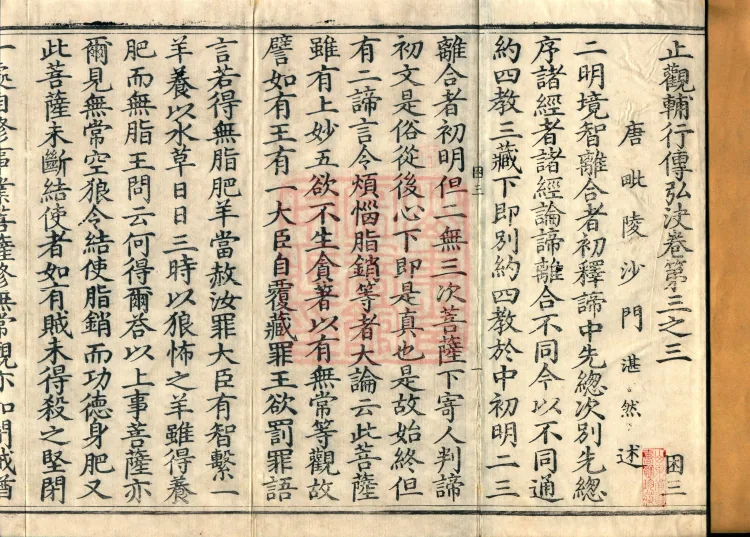 止觀輔行傳弘決卷第三之三 困三
唐毗陵沙門湛然述
二明境智離合者初釋諦中先總次別先總
序諸經者諸經論諦離合不同今以不同通
約四教三藏下即別約四教於中初明二三
離合者初明但二無三次菩薩下寄人判諦
初文是俗從後心下即是真也是故始終但
困三 一
有二諦言令煩惱脂銷等者大論云此菩薩
雖有上妙五欲不生貪著以有無常等觀故
譬如有王有一大臣自覆藏罪王欲罰罪語
言若得無脂肥羊當赦汝罪大臣有智繫一
羊養以水草日日三時以狼怖之羊雖得養
肥而無脂王問云何得爾荅以上事菩薩亦
爾見無常空狼令結使脂銷而功德身肥又
此菩薩未斷結使者如有賊未得殺之堅閉